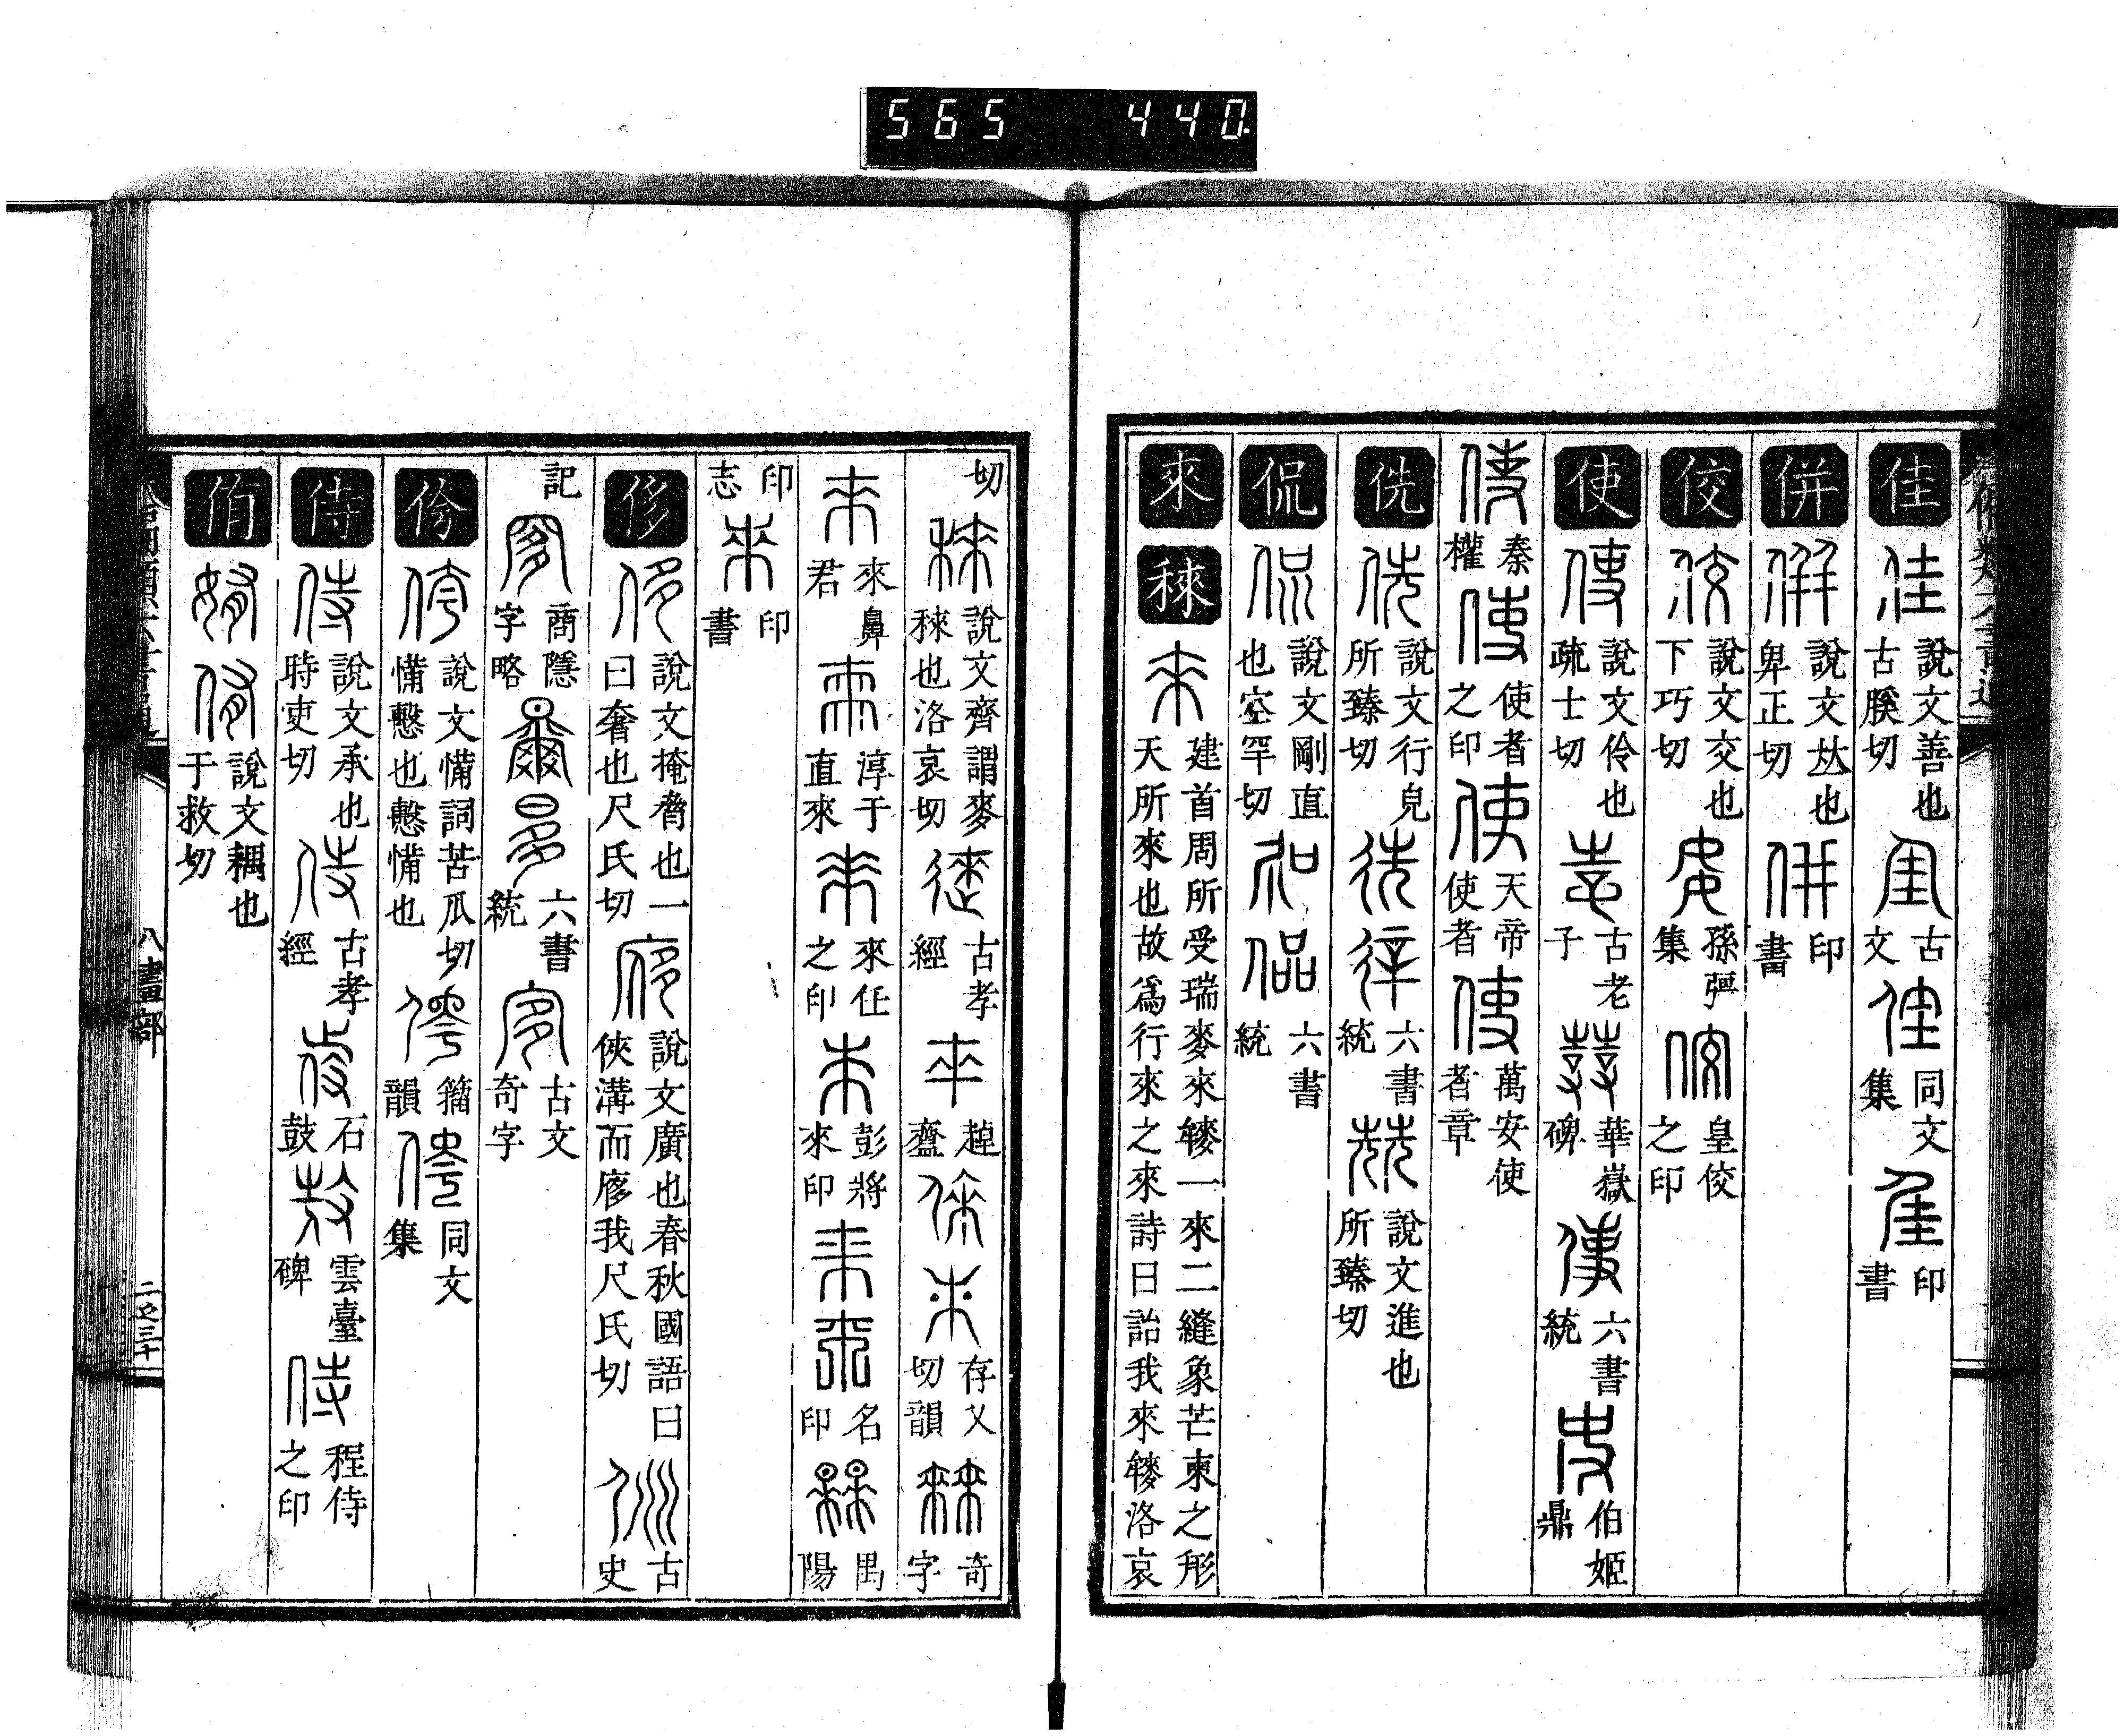 565 440.
佳 佳 說文善也古膎切 佳 古文 佳 同文集 佳 印書
併 併 說文竝也卑正切 併 印書
佼 佼 說文交也下巧切 佼 孫彊集 佼 皇佼之印
使 使 說文伶也疏士切 使 古老子 使 華嶽碑 使 六書統 使 伯姬鼎
使 秦權 使 使者之印 使 天帝使者 使 萬安使者章
侁 侁 說文行皃所臻切 侁 侁 六書統 兟 說文進也所臻切
侃 侃 說文剛直也空罕切 侃 侃 六書統
來 秾 來 建首周所受瑞麥來麰一來二縫象芒朿之形天所來也故爲行來之來詩曰詒我來麰洛哀
切 秾 說文齊謂麥秾也洛哀切 來 古孝經 來 趠鼞 來 來 存乂切韻 來 奇字
來 來鼻君 來 淳于直來 來 來任之印 來 彭將來印 來 來 名印 來 禺陽
印志 來 印書
侈 侈 說文掩脅也一曰奢也尺氏切 廖 說文廣也春秋國語曰俠溝而廖我尺氏切 侈 古史
記 侈 商隱字略 侈 侈 六書統 侈 古文奇字
侉 侉 說文㤿詞苦瓜切 侉 籀韻 侉 同文集
侍 侍 說文承也時吏切 侍 古孝經 侍 石鼓 侍 雲臺碑 侍 程侍之印
侑 姷 侑 說文耦也于救切
八畫部